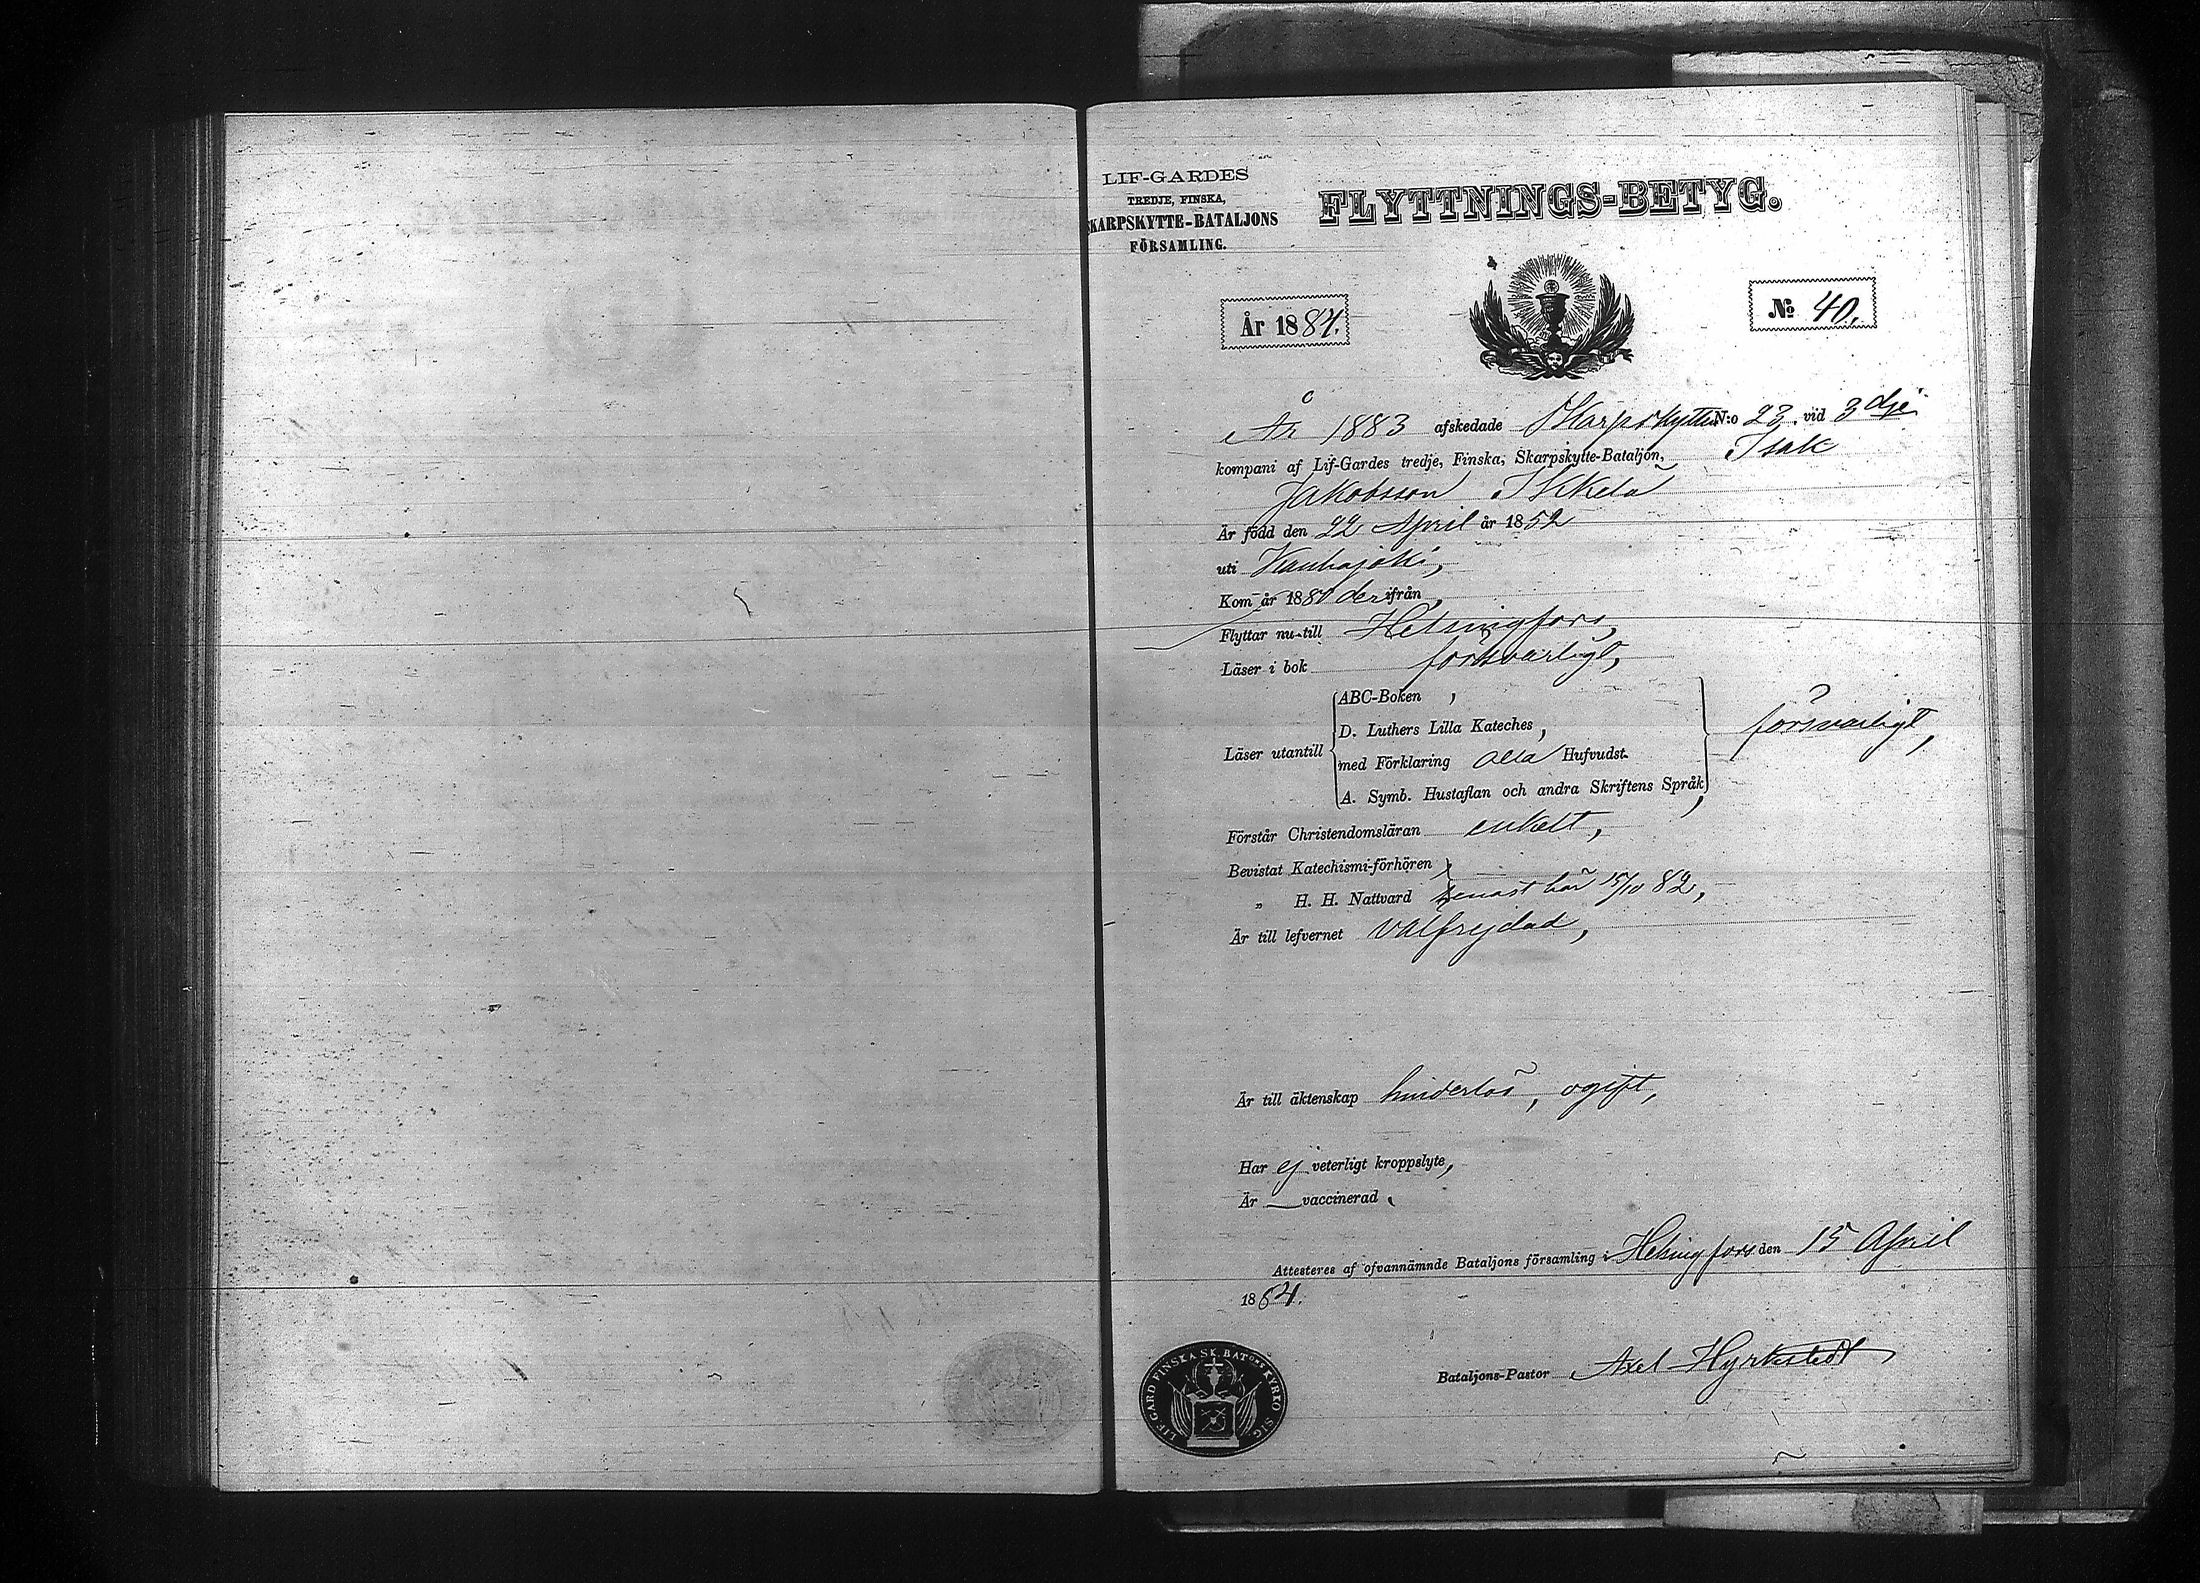 LIF-GARDES
TREDJE, FINSKA,
SKARPSKYTTE-BATALJONS
FÖRSAMLING.
FLYTTNINGS-BETYG.
År 1884.
№ 40.
År 1883 afskedade Skarpskytten N:o 23 vid 3dje
kompani af Lif-Gardes tredje, Finska, Skarpskytte-Bataljon, Isak
Jakobsson Ikkelä
Är född den 22 April år 1852
uti Kauhajoki,
Kom år 1881 derifrån,
Flyttar nu till Helsingfors,
Läser i bok försvarligt,
Läser utantill
ABC-Boken,
D. Luthers Lilla Kateches,
med Förklaring alla Hufvudst.
A. Symb. Hustaflan och andra Skriftens Språk,
försvarligt,
Förstår Christendomsläran enkelt,
Bevistat Katechismi-förhören,
„ H. H. Nattvard senast här 15/10 82,
Är till lefvernet välfrejdad,
Är till äktenskap hinderlös, ogift,
Har ej veterligt kroppslyte,
Är vaccinerad.
Attesteres af ofvannämnde Bataljons församling i Helsingfors den 15 April
1884.
Bataljons-Pastor Axel Hyrkstedt
LIF-GARD FINSKA SK. BATONS KYRKO SIG.